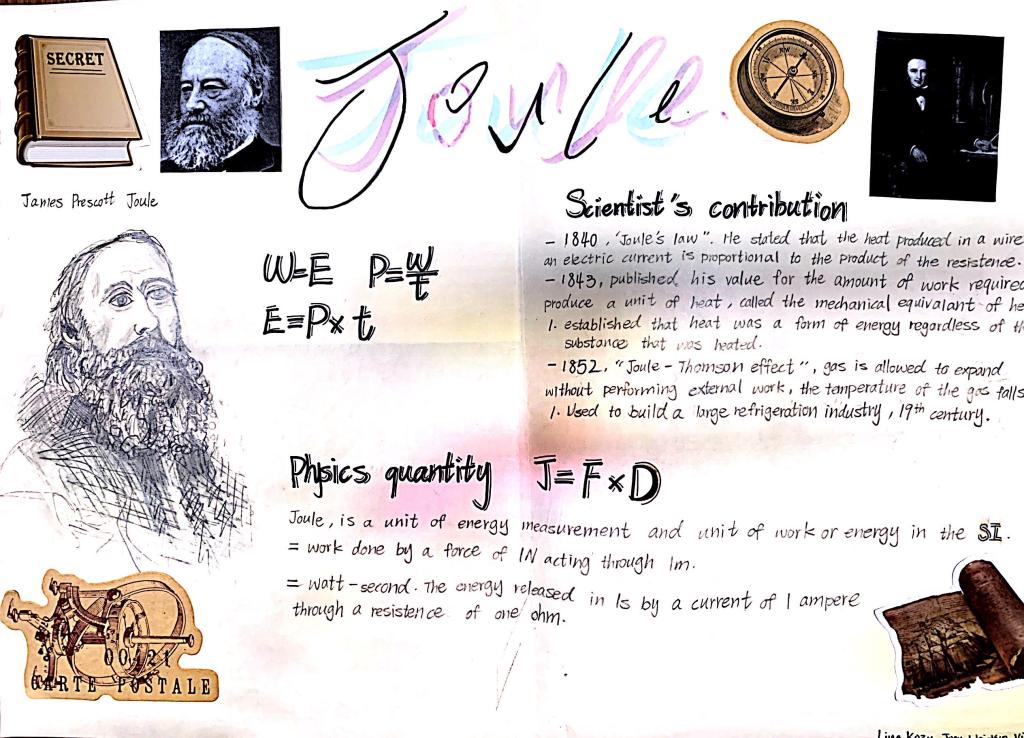 SECRET
Joule
James Prescott Joule
W=E P=W/t
E=P×t
Scientist's contribution
- 1840, "Joule's law". He stated that the heat produced in a wire
an electric current is proportional to the product of the resistence.
- 1843, published his value for the amount of work required
produce a unit of heat, called the mechanical equivalant of he
1. established that heat was a form of energy regardless of th
substance that was heated.
- 1852, "Joule - Thomson effect", gas is allowed to expand
without performing external work, the temperature of the gas falls
1. Used to build a large refrigeration industry, 19th century.
Physics quantity J=F×D
Joule, is a unit of energy measurement and unit of work or energy in the SI.
= work done by a force of 1N acting through 1m.
= watt-second. The energy released in 1s by a current of 1 ampere
through a resistence of one ohm.
CARTE POSTALE